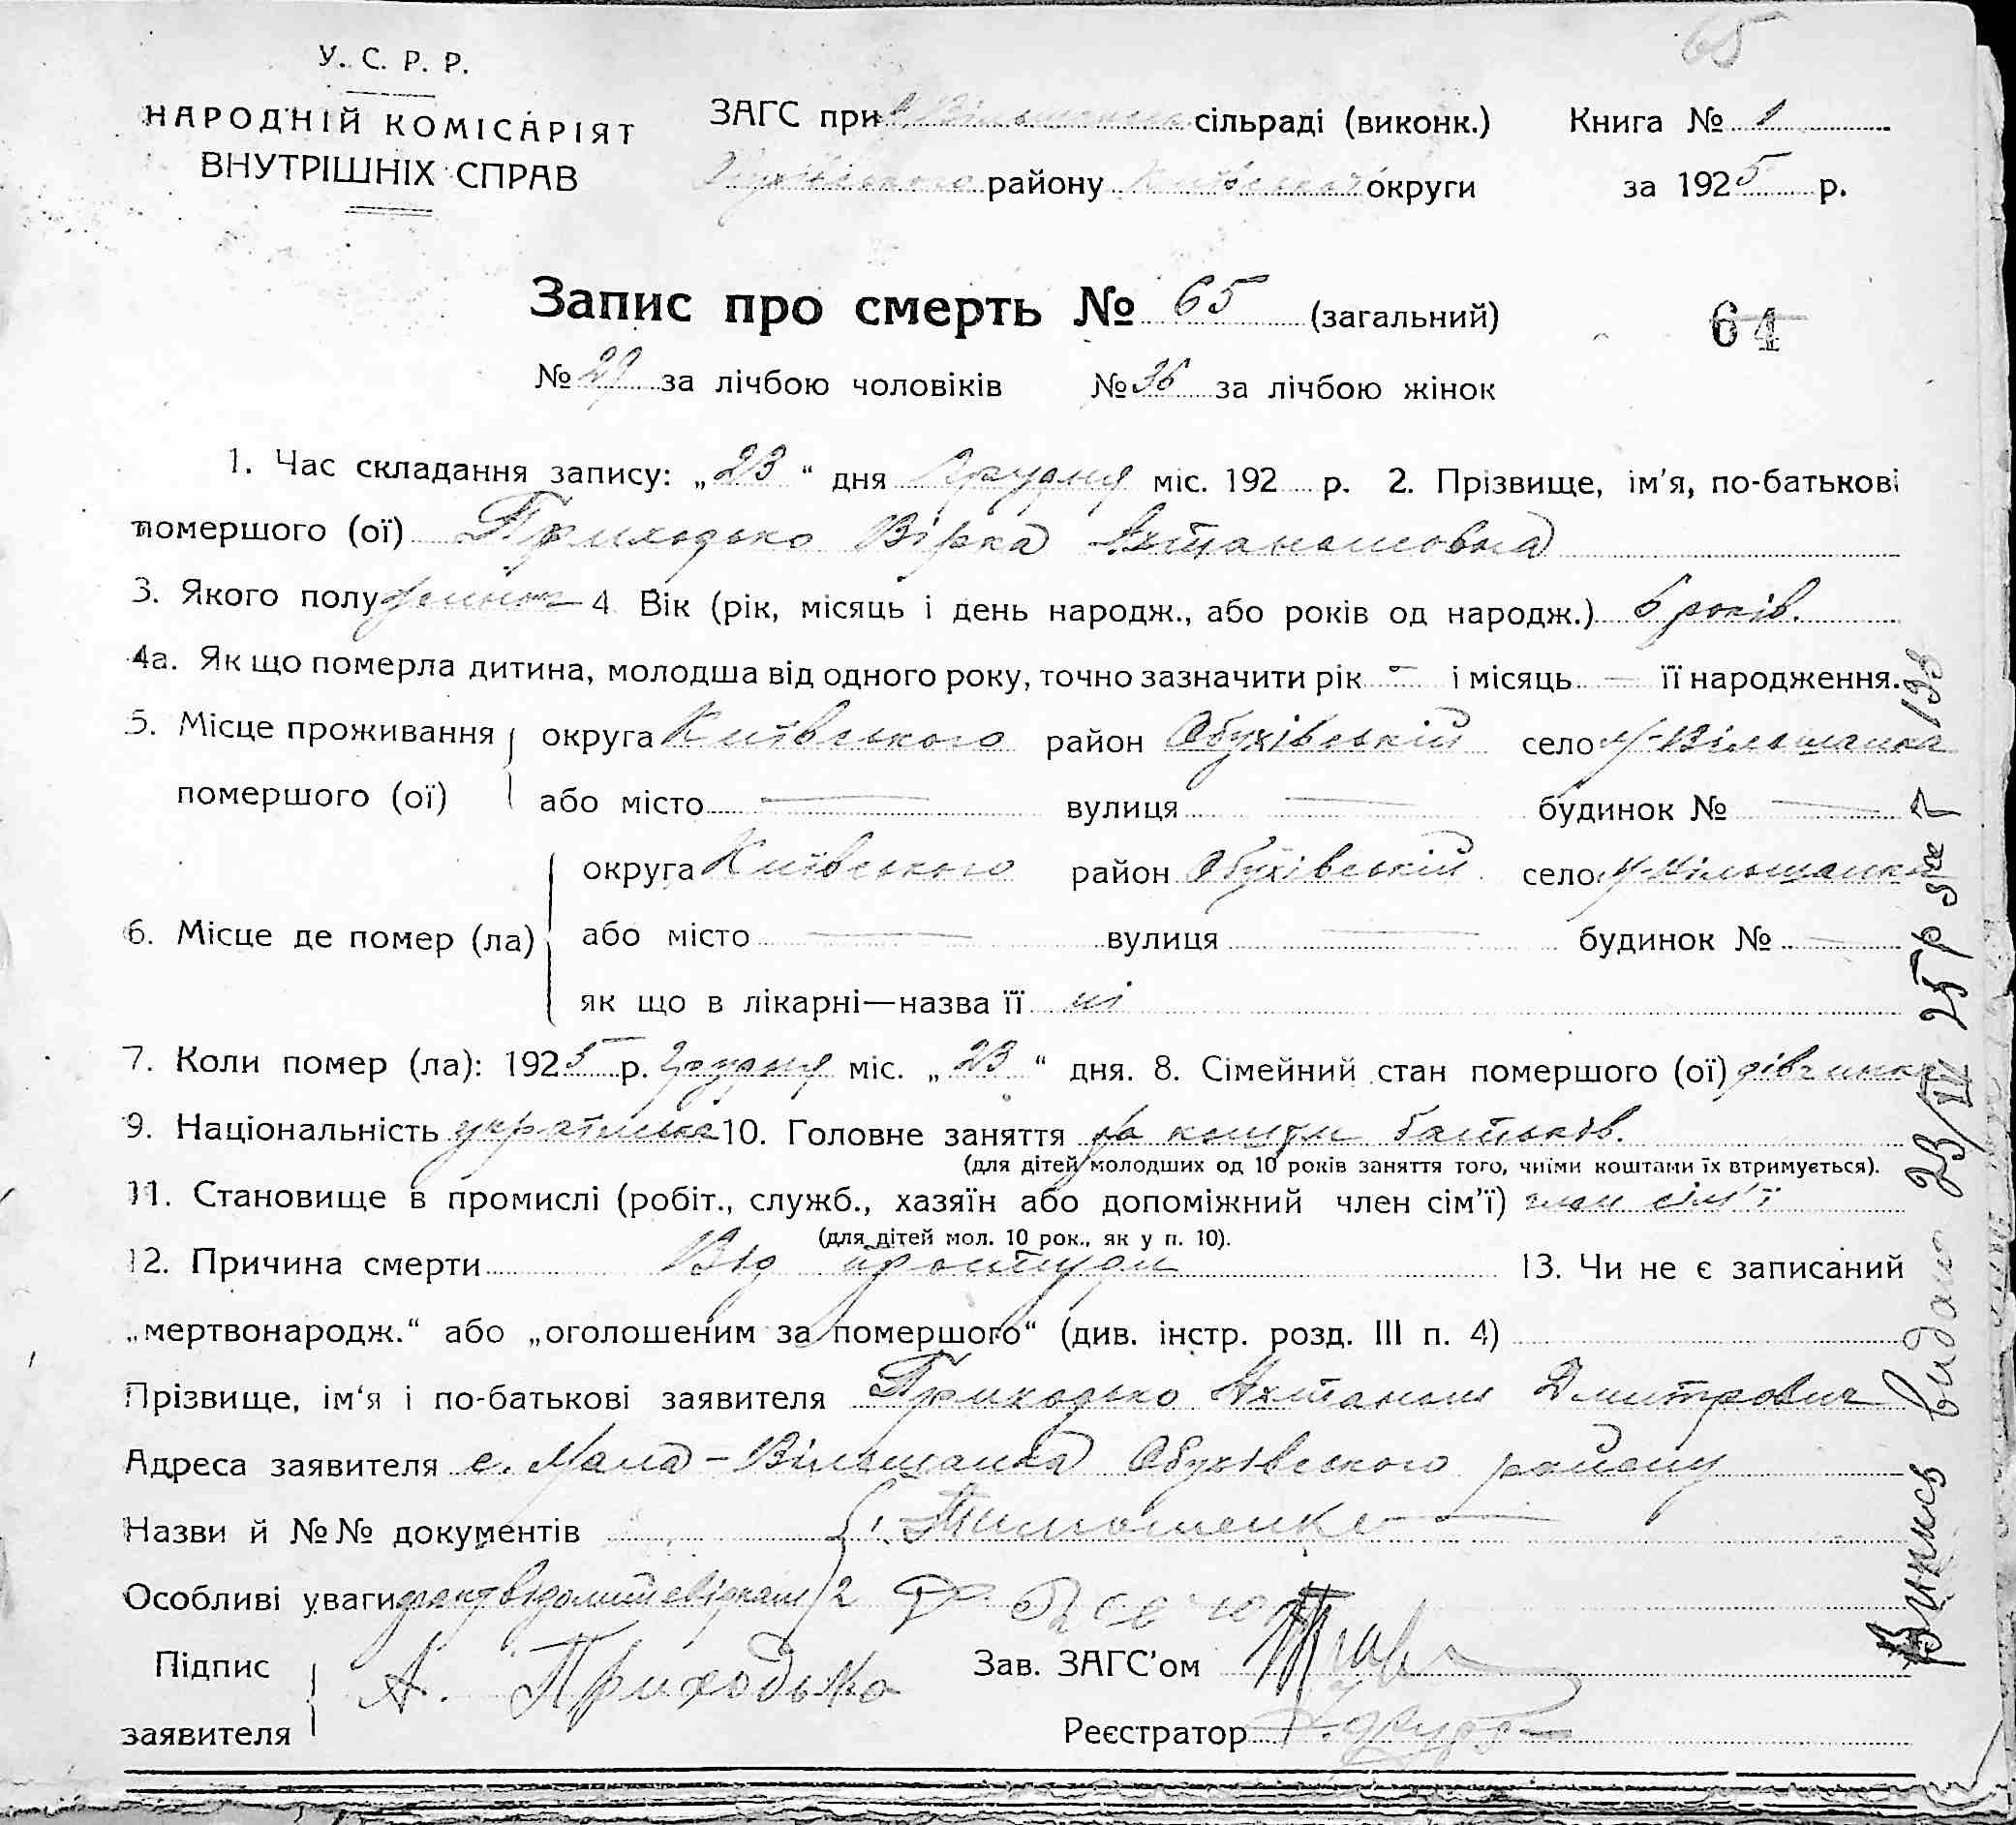 65
У. С. Р. Р.
НАРОДНІЙ КОМІСАРІЯТ
ВНУТРІШНІХ СПРАВ
ЗАГС при Вільшанськ сільраді (виконк.) Книга № 1
Обухівського району Київської округи за 1925 р.
Запис про смерть № 65 (загальний)
64
№ 29 за лічбою чоловіків № 36 за лічбою жінок
1. Час складання запису: „23“ дня Грудня міс. 192 р. 2. Прізвище, ім'я, по-батькові
помершого (ої) Приходько Вірка
3. Якого полу 4 Вік (рік, місяць і день народж., або років од народж.) 6 років.
4а. Як що померла дитина, молодша від одного року, точно зазначити рік — і місяць — її народження.
5. Місце проживання округа Київського район Обухівській село М-Вільшанка
помершого (ої) або місто — вулиця — будинок № —
округа Київського район Обухівській село М-Вільшанка
6. Місце де помер (ла) або місто — вулиця — будинок № —
як що в лікарні—назва її ні
7. Коли помер (ла): 1925 р. Грудня міс. „23“ дня. 8. Сімейний стан помершого (ої) дівчинка
9. Національність українка 10. Головне заняття на кошти батьків.
(для дітей молодших од 10 років заняття того, чиїми коштами їх втримується).
11. Становище в промислі (робіт., служб., хазяїн або допоміжний член сім'ї) член сім'ї
(для дітей мол. 10 рок., як у п. 10).
12. Причина смерти Від простуди 13. Чи не є записаний
„мертвонародж.“ або „оголошеним за помершого“ (див. інстр. розд. III п. 4)
Прізвище, ім'я і по-батькові заявителя Приходько Дмитрович
Адреса заявителя с. Мала-Вільшанка Обухівского району
Назви й №№ документів
Особливі уваги 2
Підпис заявителя А. Приходько Зав. ЗАГС'ом
Реєстратор
Випись видано 23/XII 25р за № 138